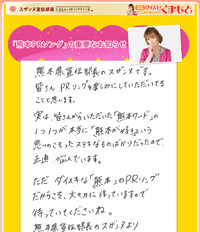 スザンヌ宣伝部長
くまもと
『熊本PRソング』の重要なお知らせ
熊本県宣伝部長のスザンヌです。
皆さん PRソングを楽しみにしていただいてる
ことと思います。
実は、皆さんからいただいた「熊本ワード」の
1つ1つが本当に「熊本が好き♡」という
思いのこもったステキなものばかりだったので
正直、悩んでいます。
ただ ダイスキな「熊本」のPRソング
だからこそ、大切に作っていますので
待っていてくださいね。
熊本県宣伝部長のスザンヌより